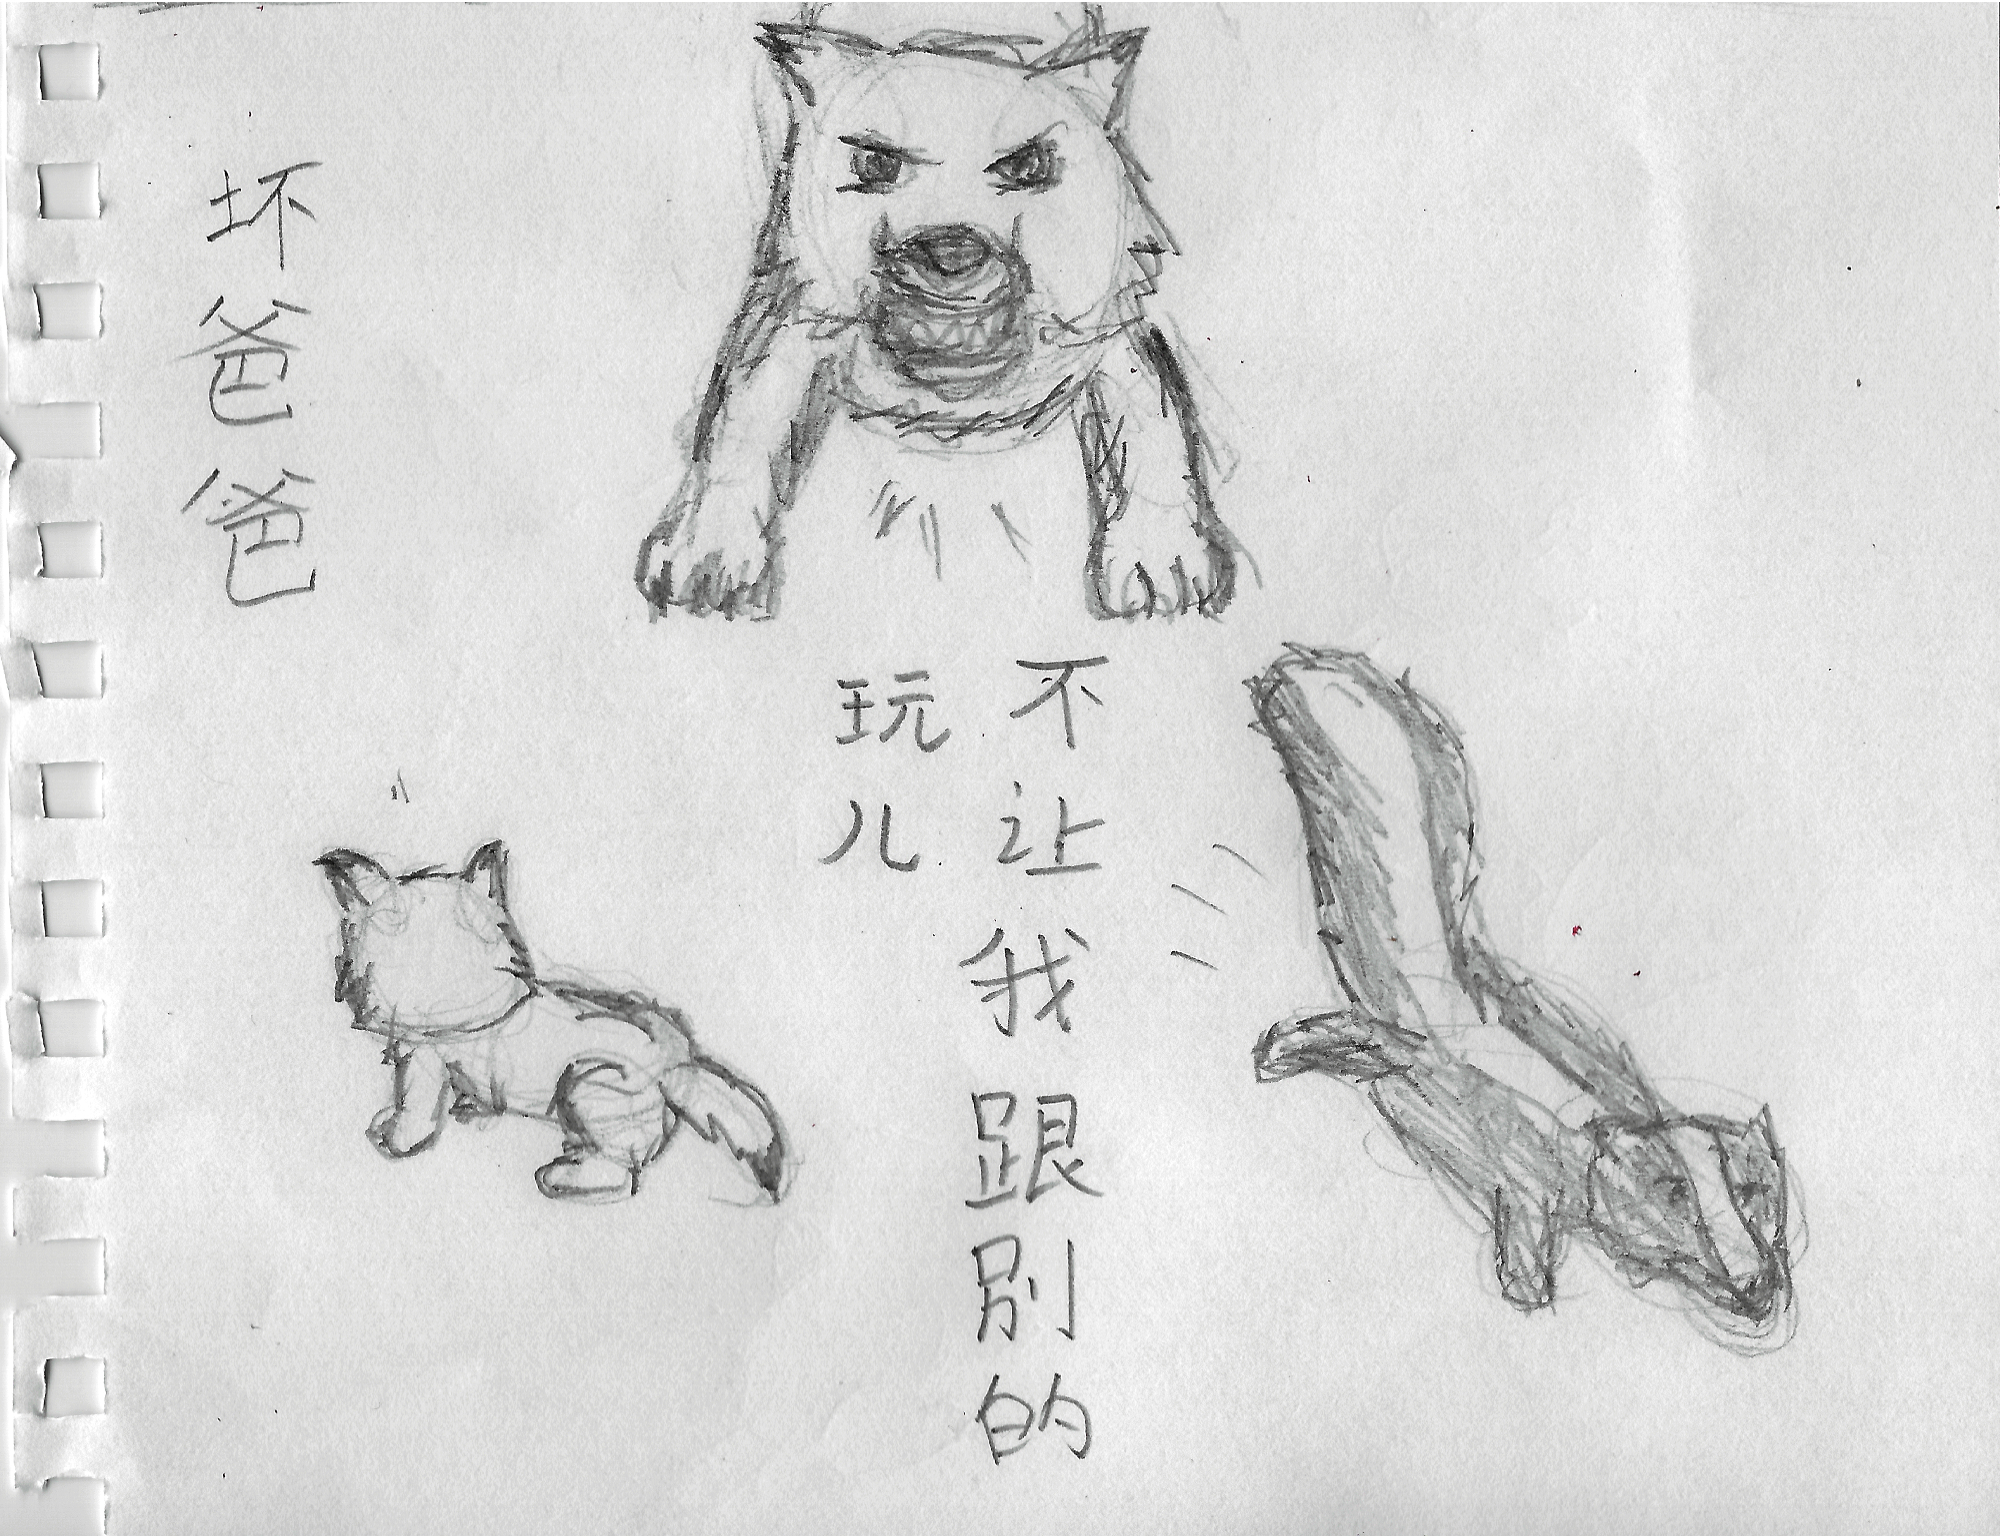 坏爸爸
不让我跟别的
玩儿